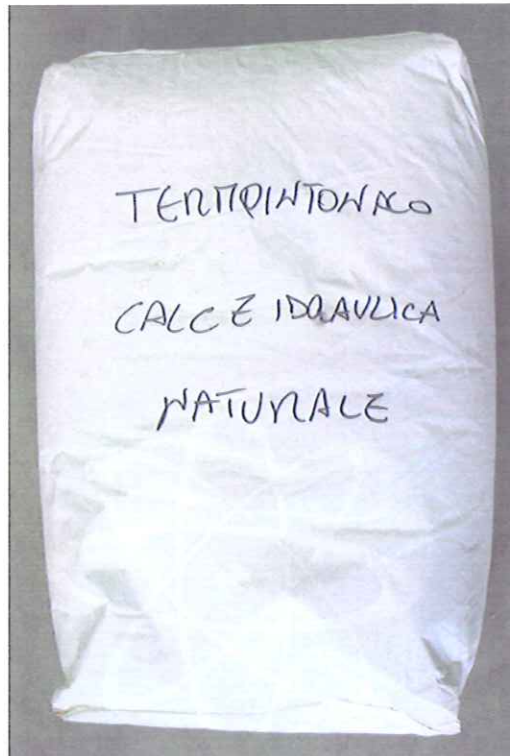 TERMOINTONACO
CALCE IDRAULICA
NATURALE